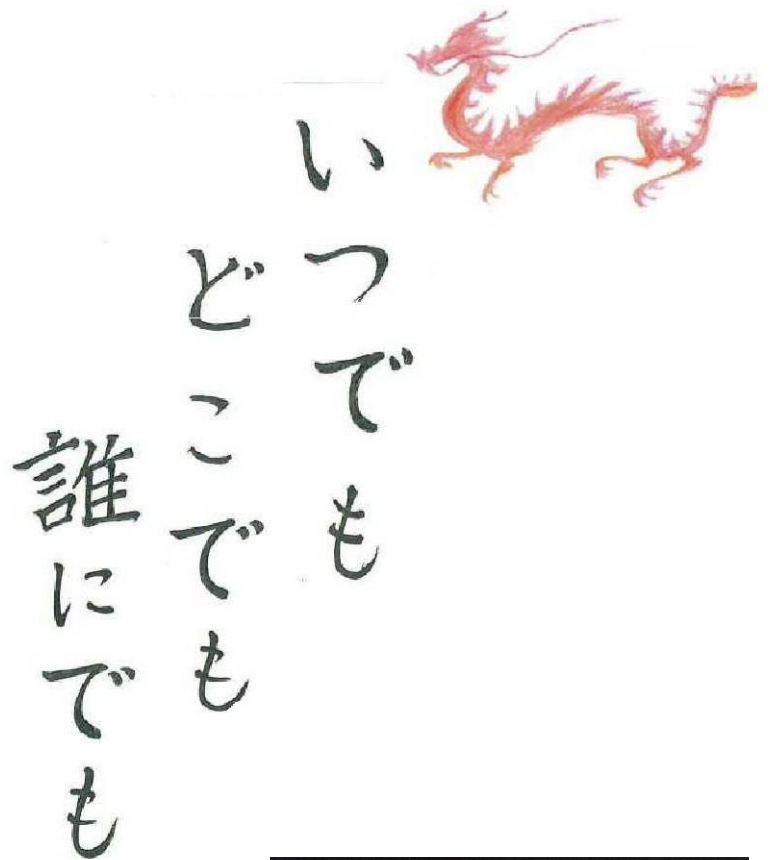 いつでも
どこでも
誰にでも